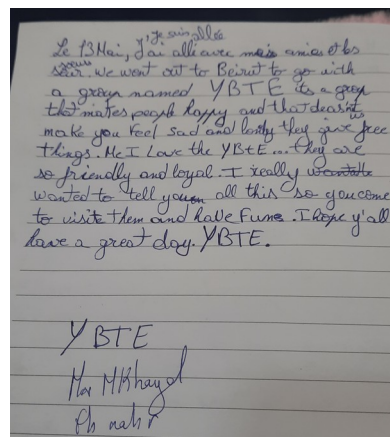 j'e suis allée
Le 13 Mai, J'ai allé avec mes amies et les
sœur. We went out to Beirut to go with
a group named YBTE its a group
that makes people happy and that dearsnt
make you feel sad and lastly they give us free
things. Me I Love the YBtE... they are
so friendly and loyal. I really
wanted to tell you all this so you come
to visite them and have Fune. I hope y'all
have a great day. YBTE.
YBTE
MKhayel